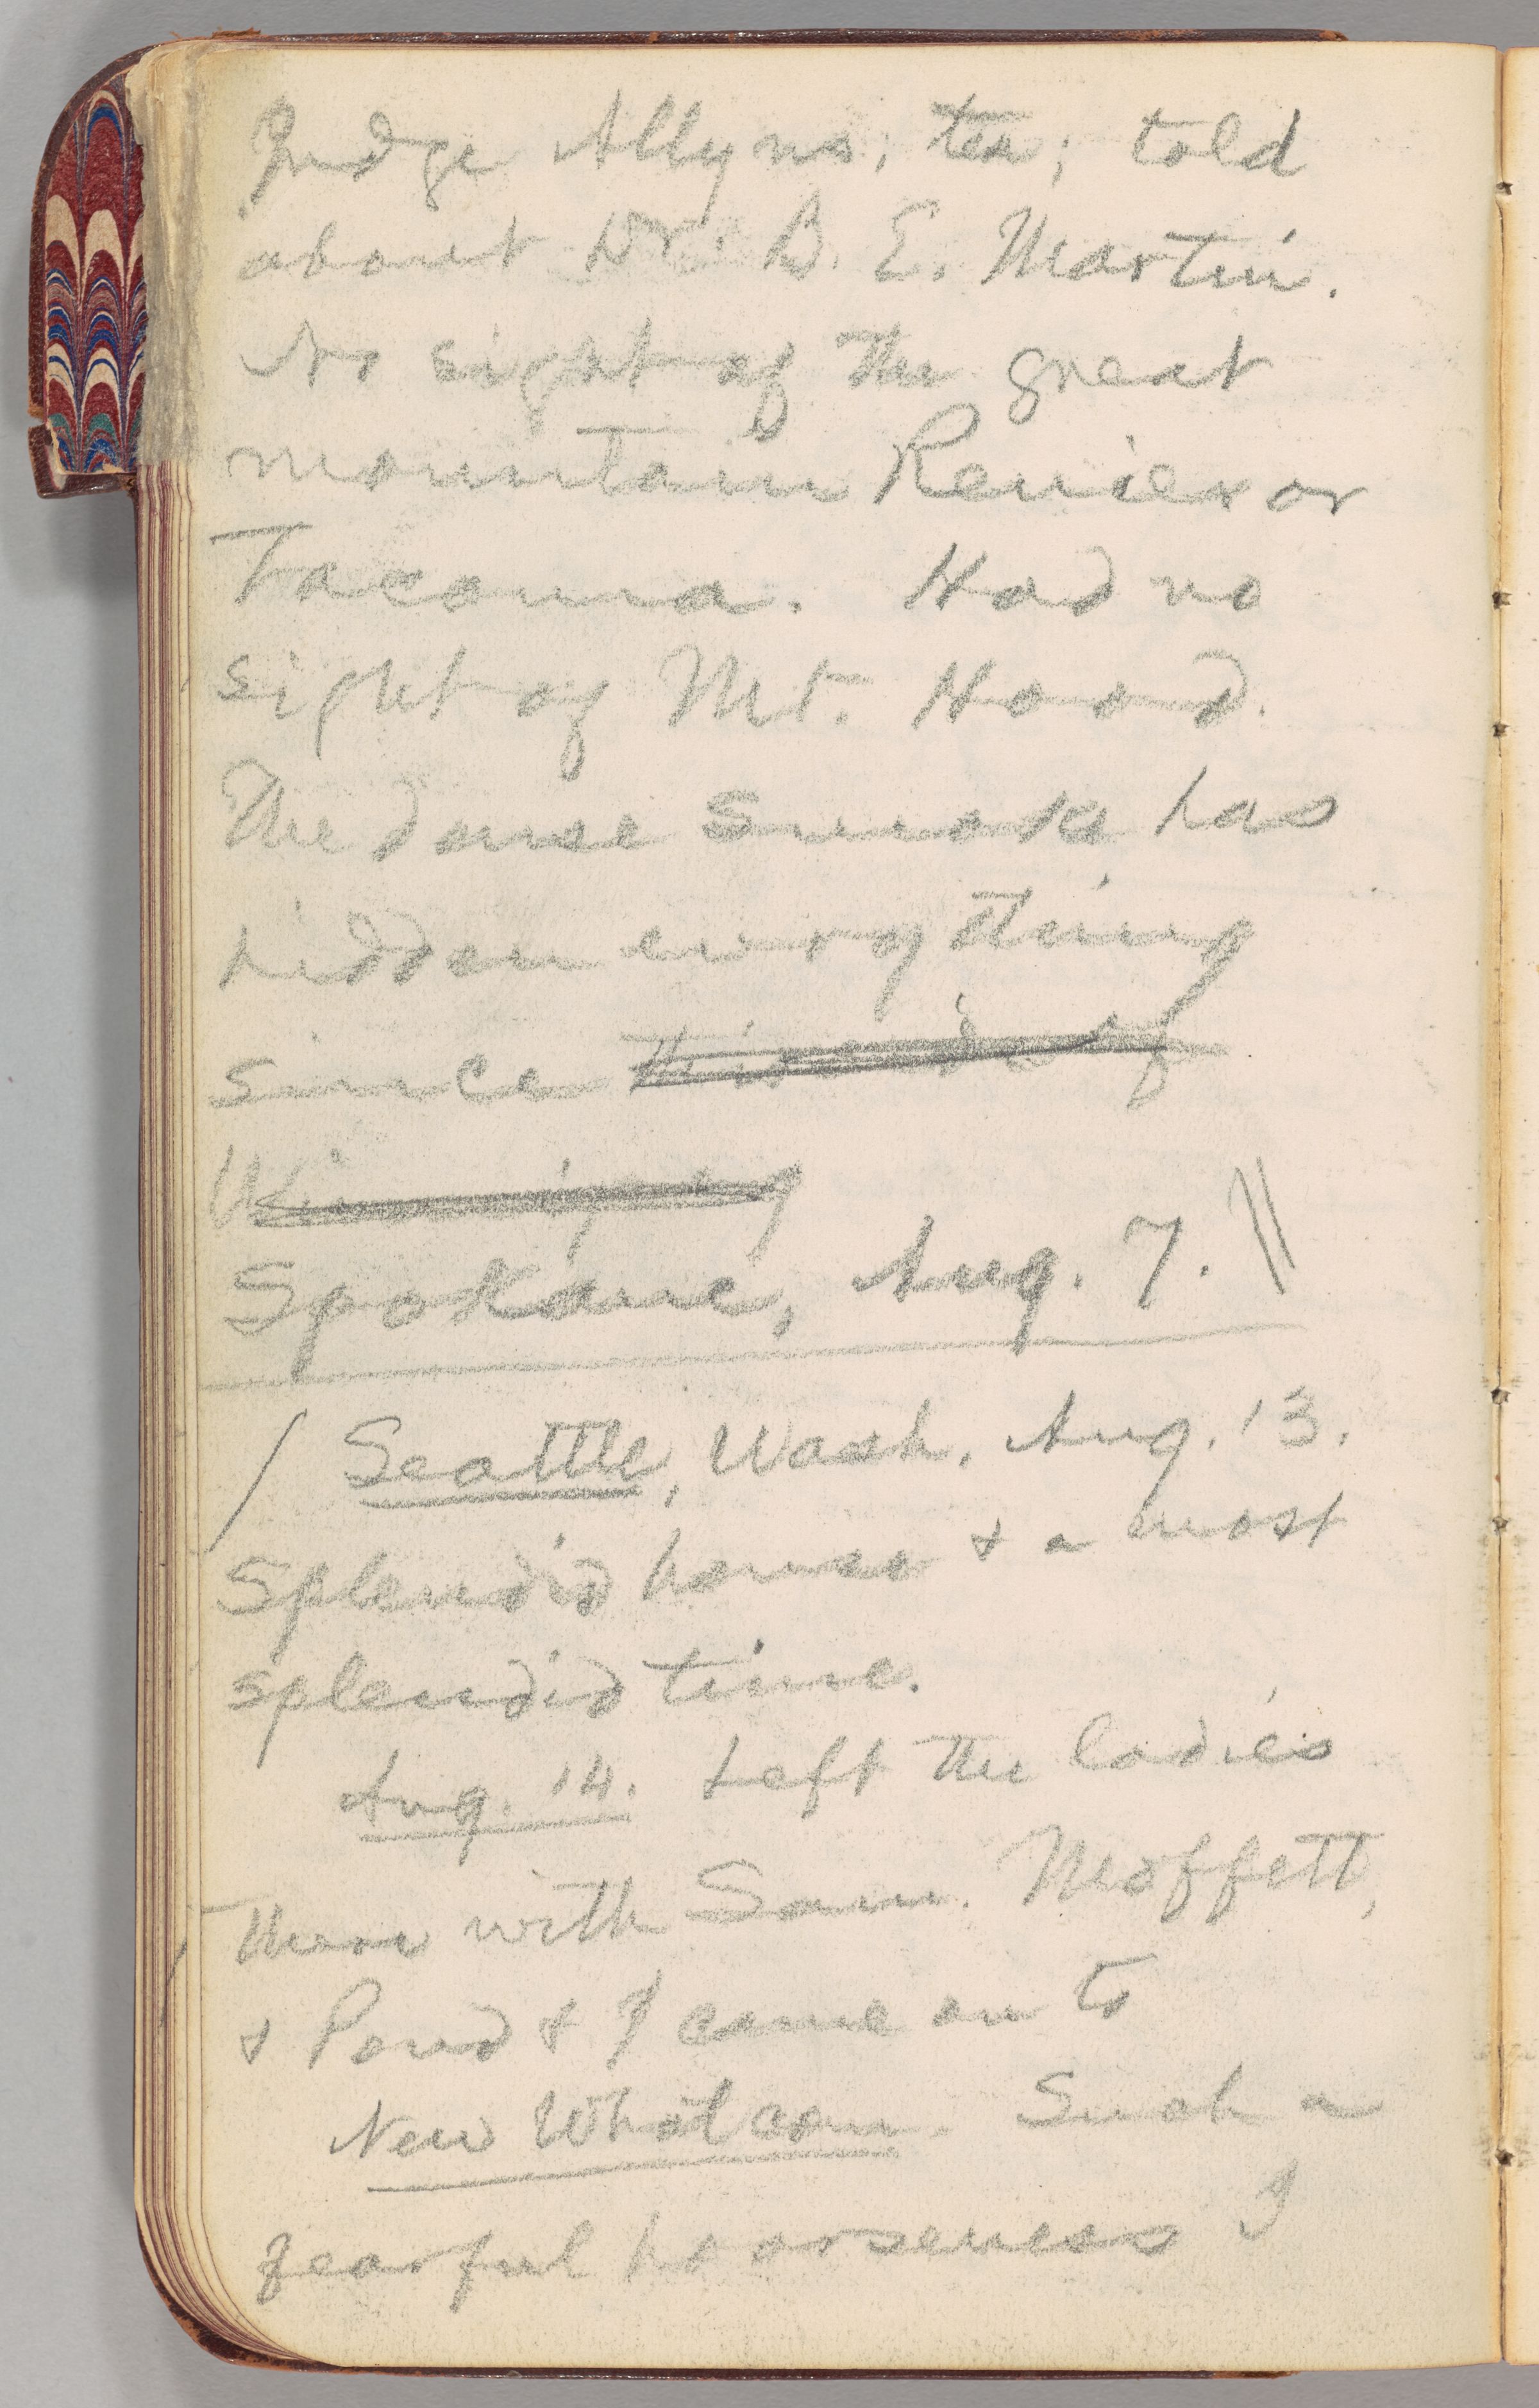 Judge Allyns; tea; told
about Dr. B. E. Martin.
No sight of the great
mountain Renier or
Tacoma. Had no
sight of Mt. Hood.
The dense smoke has
hidden everything
since this side of
Winnipeg
Spokane, Aug. 7. //
/ Seattle, Wash, Aug. 13.
Splendid house & a most
splendid time.
Aug. 14. Left the ladies
there with Sam. Moffett,
& Pond & I came on to
New Whatcom. Such a
fearful hoarseness I